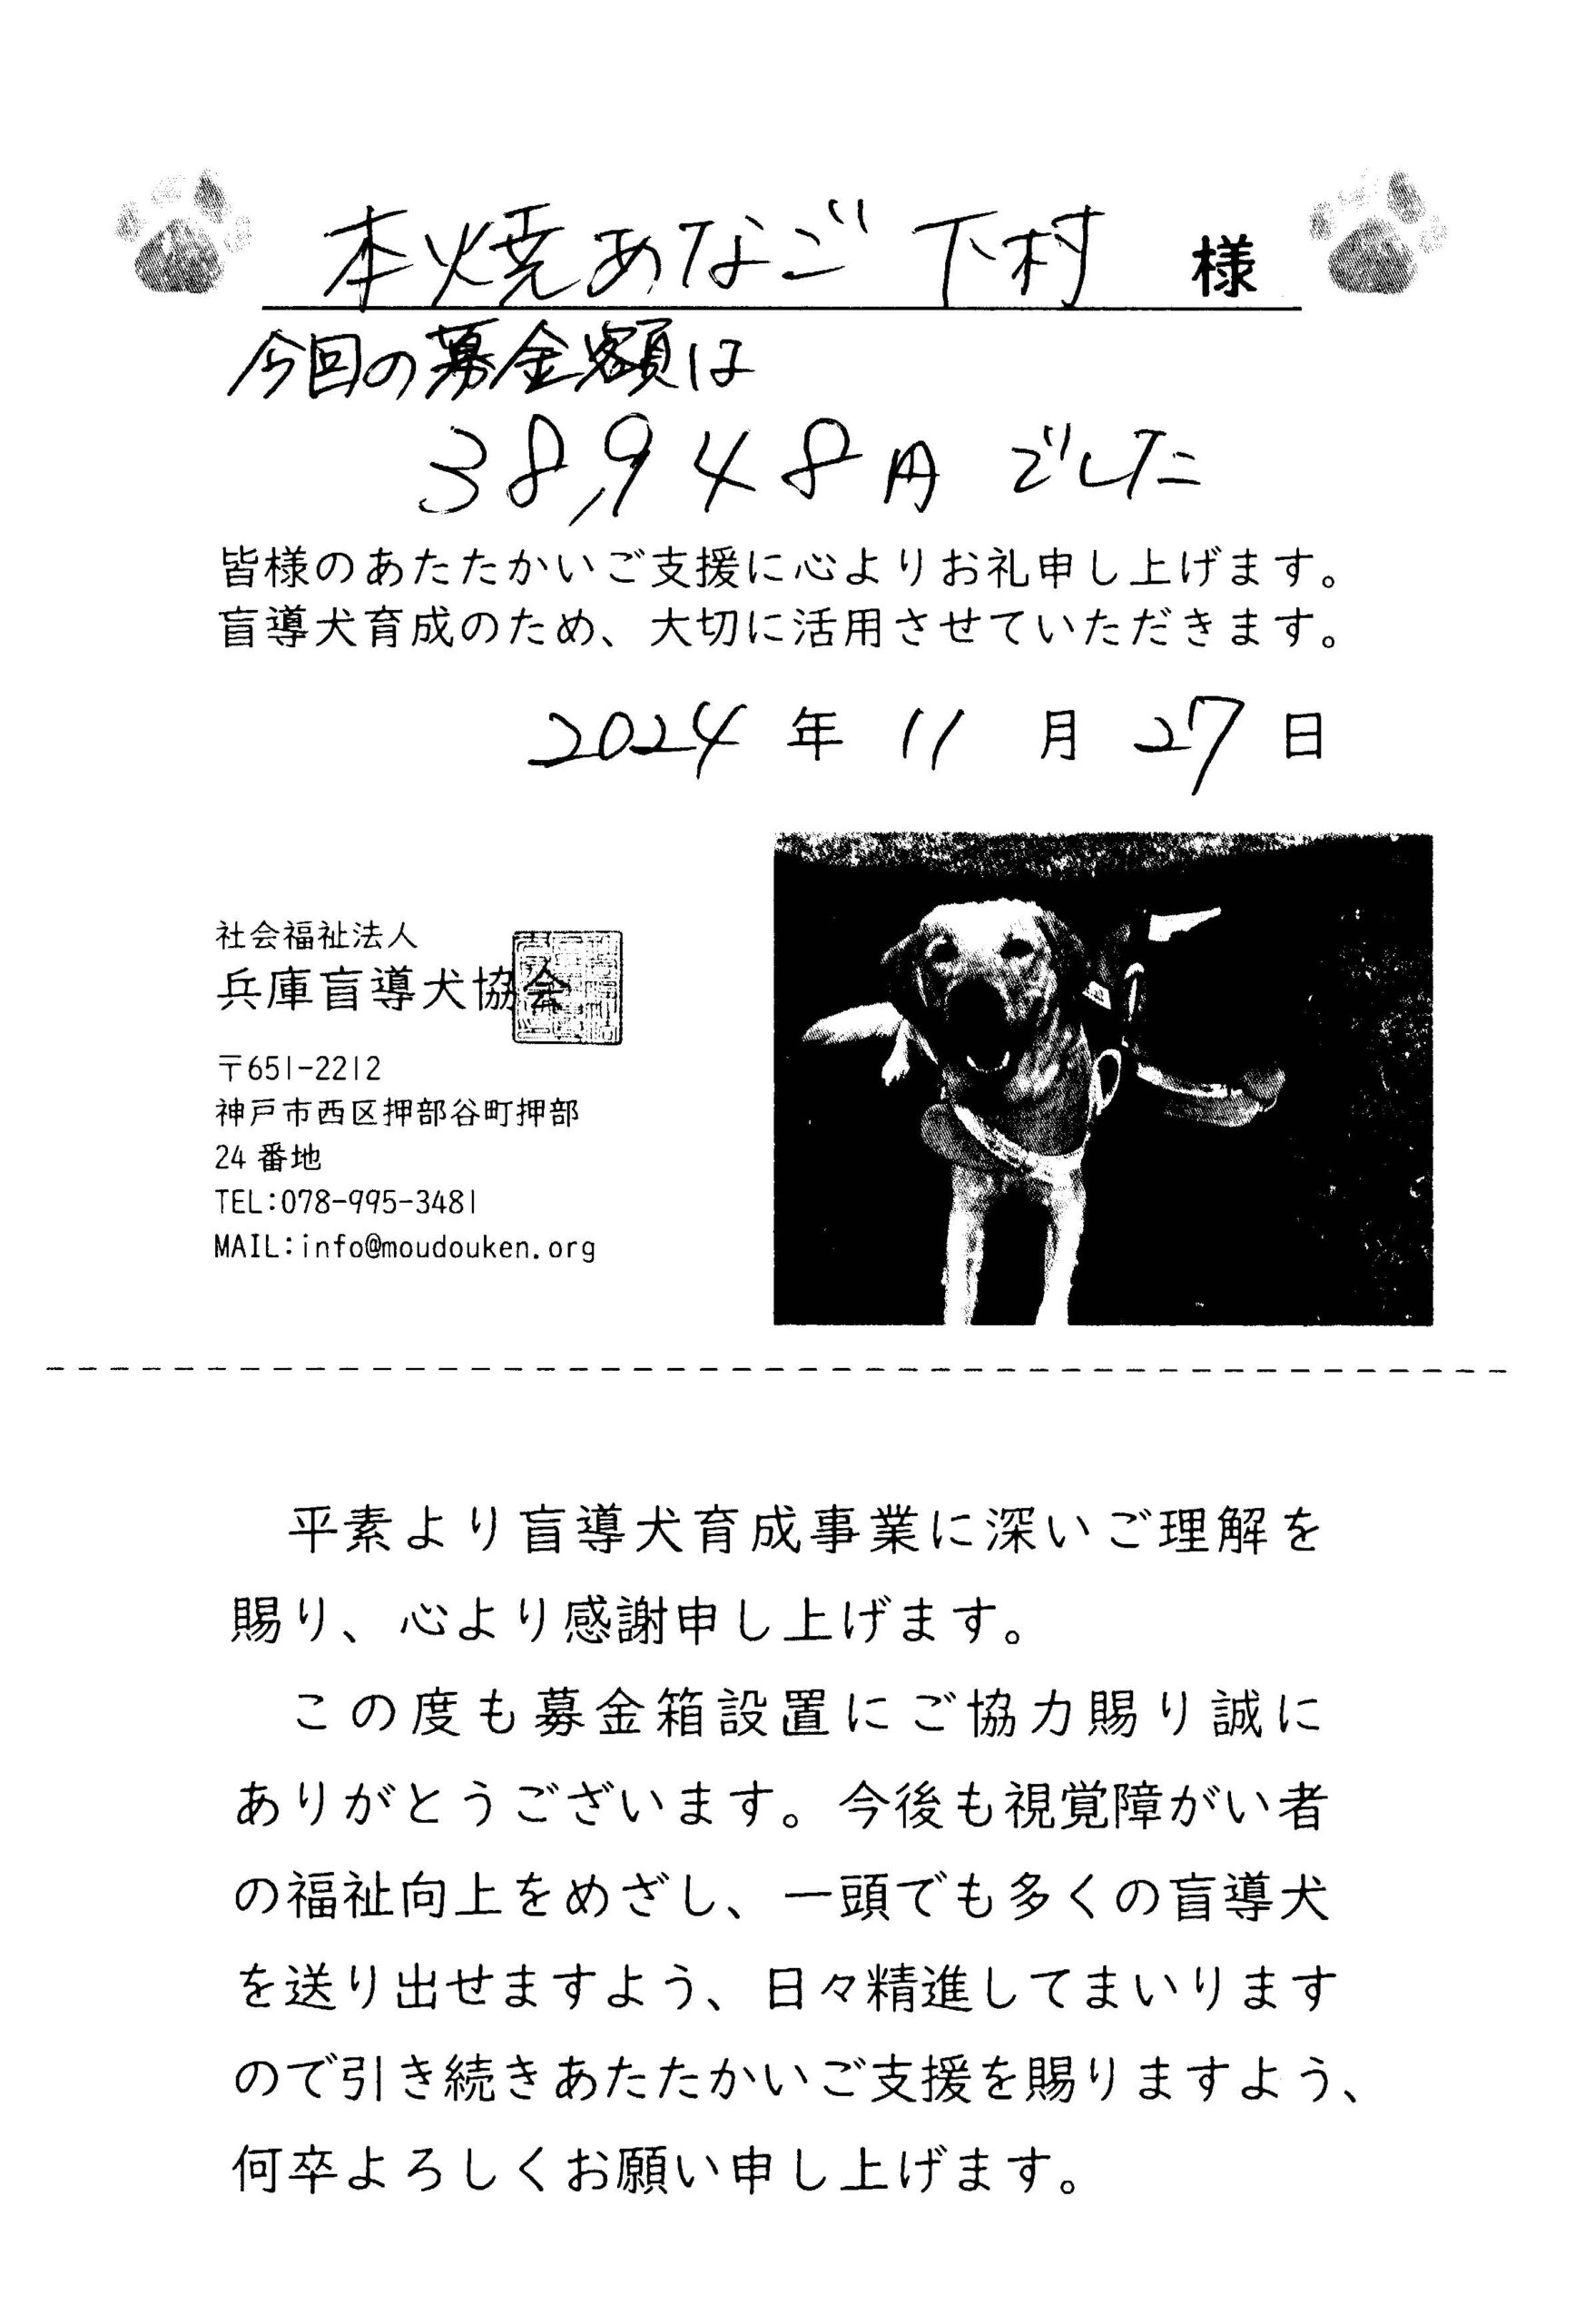 本焼あなご 下村 様
今回の募金額は
38,948円 でした
皆様のあたたかいご支援に心よりお礼申し上げます。
盲導犬育成のため、大切に活用させていただきます。
2024 年 11 月 27 日
社会福祉法人
兵庫盲導犬協会
〒651-2212
神戸市西区押部谷町押部
24 番地
TEL:078-995-3481
MAIL:info@moudouken.org
平素より盲導犬育成事業に深いご理解を
賜り、心より感謝申し上げます。
この度も募金箱設置にご協力賜り誠に
ありがとうございます。今後も視覚障がい者
の福祉向上をめざし、一頭でも多くの盲導犬
を送り出せますよう、日々精進してまいります
ので引き続きあたたかいご支援を賜りますよう、
何卒よろしくお願い申し上げます。